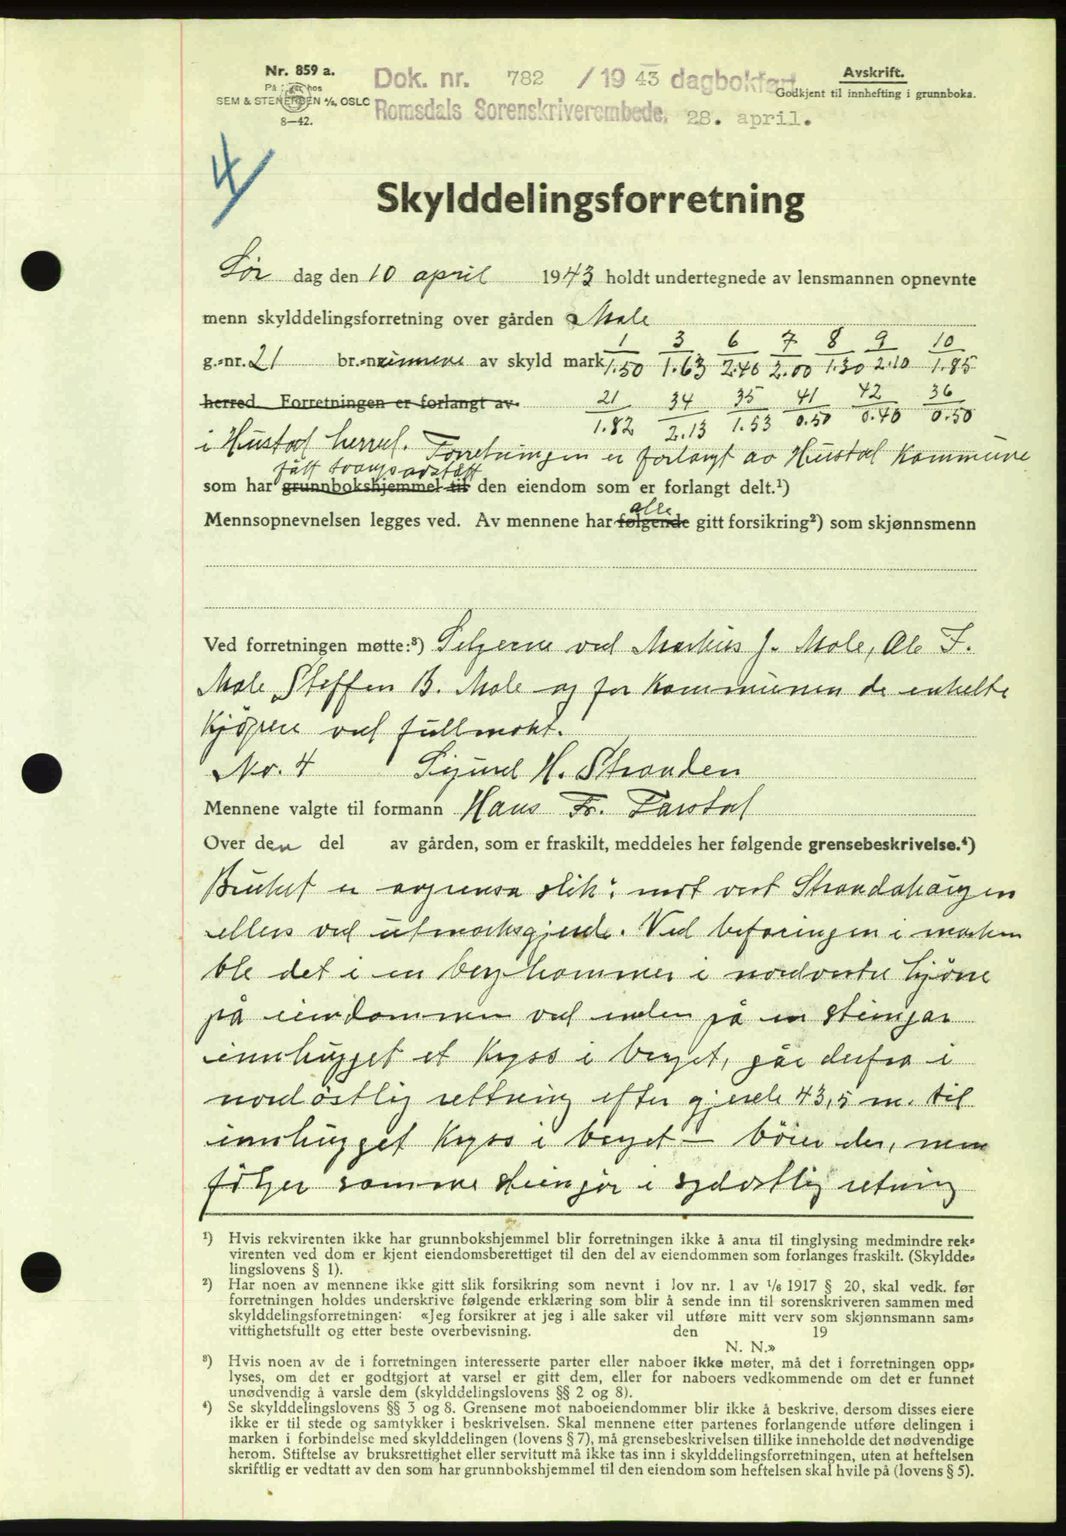 Nr. 859 a.
SEM & STENERSEN A/S, OSLO
8—42.
Dok. nr. 782 / 19 43 dagbokført
Romsdals Sorenskriverembede. 28. april.
Avskrift.
Godkjent til innhefting i grunnboka.
4
Skylddelingsforretning
Lør dag den 10 april 1943 holdt undertegnede av lensmannen opnevnte
menn skylddelingsforretning over gården Male
g.-nr. 21 br.-nr. av skyld mark 1/1.50 3/1.63 6/2.40 7/2.00 8/1.30 9/2.10 10/1.85
herred. Forretningen er forlangt av 21/1.82 34/2.13 35/1.53 41/0.50 42/0.40 36/0.50
i Hustad herred. Forretningen er forlangt av Hustad Kommune
som har grunnbokshjemmel til den eiendom som er forlangt delt.¹)
Mennsopnevnelsen legges ved. Av mennene har følgende alle gitt forsikring²) som skjønnsmenn
Ved forretningen møtte:³) Selgerne ved Markus J. Male, Ole F.
Male Steffen B. Male og for Kommunen de enkelte
Kjöpere ved fullmakt.
No. 4 Sigurd H. Stranden
Mennene valgte til formann Hans Fr. Farstad
Over den del av gården, som er fraskilt, meddeles her følgende grensebeskrivelse.⁴)
Bruket er avgrensa slik: mot vest Strandahaugen
ellers ved utmarksgjerde. Ved befaringen i marken
ble det i en berghammer i nordvestre hjörne
på eiendommen ved enden på en steingar
innhugget et Kryss i berget, går derfra i
nordöstlig rettning efter gjerde 43,5 m. til
innhugget Kryss i berget — böier der, men
fölger samme steingar i sydöstlig retning
¹) Hvis rekvirenten ikke har grunnbokshjemmel blir forretningen ikke å anta til tinglysing medmindre rek-
virenten ved dom er kjent eiendomsberettiget til den del av eiendommen som forlanges fraskilt. (Skyldde-
lingslovens § 1).
²) Har noen av mennene ikke gitt slik forsikring som nevnt i lov nr. 1 av 1/6 1917 § 20, skal vedk. før
forretningen holdes underskrive følgende erklæring som blir å sende inn til sorenskriveren sammen med
skylddelingsforretningen: «Jeg forsikrer at jeg i alle saker vil utføre mitt verv som skjønnsmann sam-
vittighetsfullt og etter beste overbevisning. den 19
N. N.»
³) Hvis noen av de i forretningen interesserte parter eller naboer ikke møter, må det i forretningen opp-
lyses, om det er godtgjort at varsel er gitt dem, eller for naboers vedkommende om det er funnet
unødvendig å varsle dem (skylddelingslovens §§ 2 og 8).
⁴) Se skylddelingslovens §§ 3 og 8. Grensene mot naboeiendommer blir ikke å beskrive, dersom disses eiere
ikke er til stede og samtykker i beskrivelsen. Skal mennene etter partenes forlangende utføre delingen i
marken i forbindelse med skylddelingen (lovens § 7), må grensebeskrivelsen tillike inneholde det nødvendige
herom. Stiftelse av bruksrettighet eller servitutt må ikke tas inn i skylddelingsforretningen, uten at heftelsen
skriftlig er vedtatt av den som har grunnbokshjemmel til den eiendom som heftelsen skal hvile på (lovens § 5).